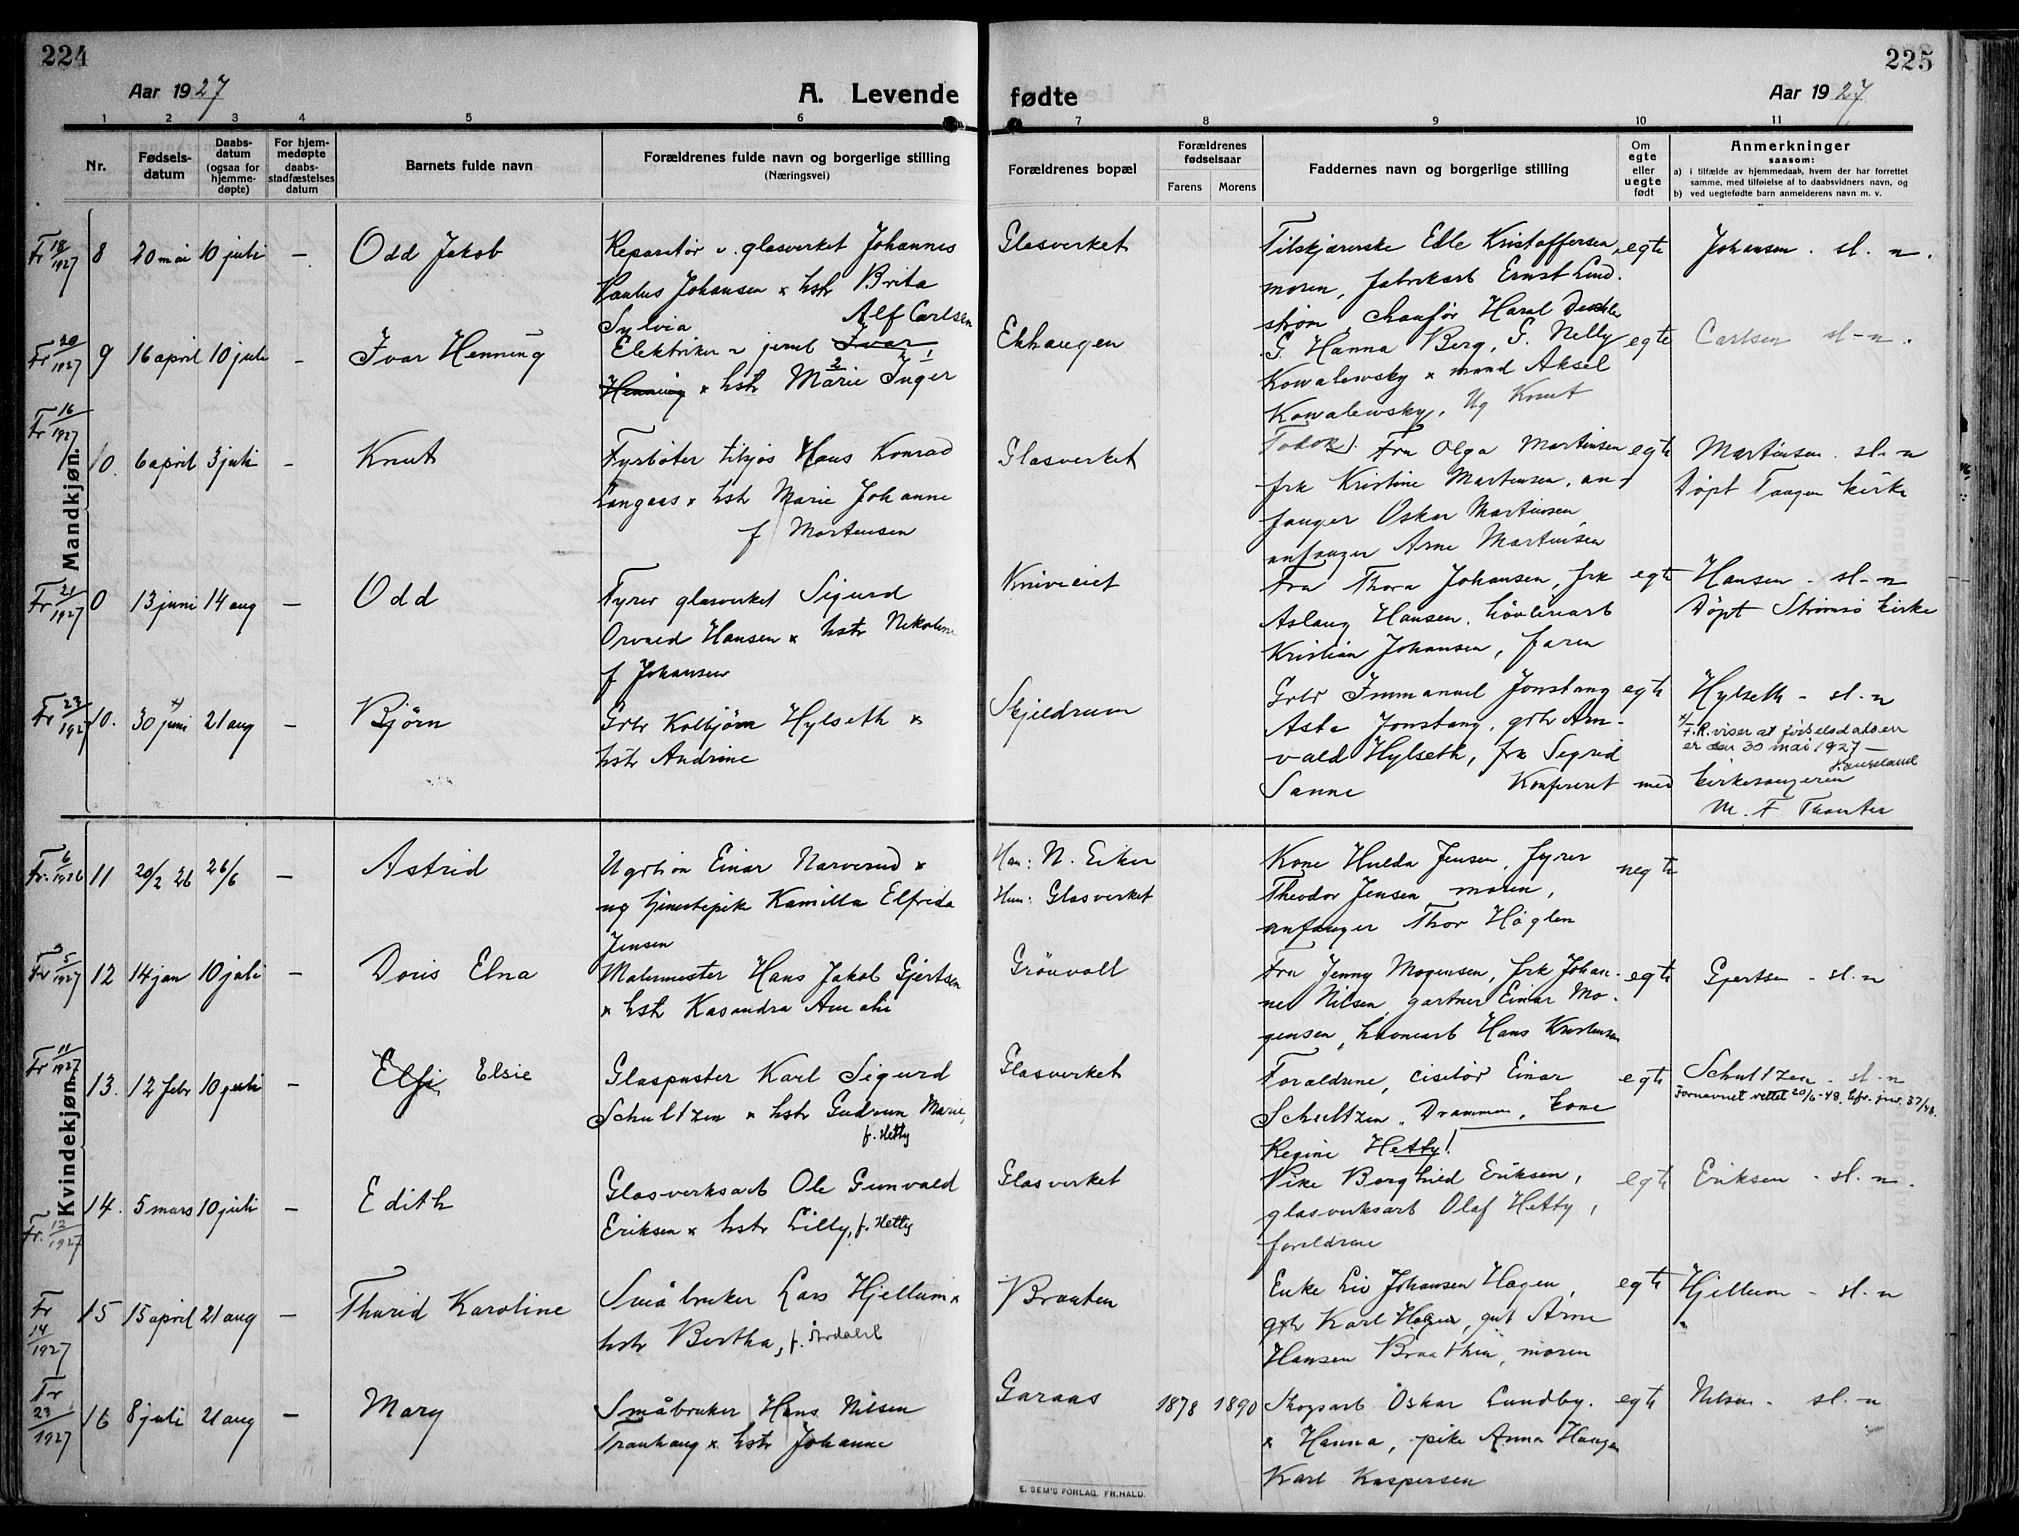 224
Aar 1927
A. Levende
fødte
Aar 1927
225
1 2 3 4 5 6 7 8 9 10 11
Nr.
Fødsels-
datum
Daabs-
datum
(ogsaa for
hjemme-
døpte)
For hjem-
medøpte
daabs-
stadfæstelses
datum
Barnets fulde navn
Forældrenes fulde navn og borgerlige stilling
(Næringsvei)
Forældrenes bopæl
Forældrenes
fødselsaar
Farens Morens
Faddernes navn og borgerlige stilling
Om
egte
eller
uegte
født
Anmerkninger
saasom:
a) i tilfælde av hjemmedaab, hvem der har forrettet
samme, med tilføielse af to daabsvidners navn, og
b) ved uegtefødte barn anmelderens navn m. v.
Mandkjøn.
Fr 18/1927 8 20 mai 10 juli — Odd Jakob
Reparatør v. glasverket Johannes
Paulus Johansen x hstr Brita
Sylvia
Glasverket
Tilskjærerske Edle Kristoffersen,
moren, fabrikarb Ernst Lind-
strøm chaufør Haral
egte
Johansen. sl. n.
Fr 20/1927 9 16 april 10 juli — Ivar Henning
Alf Carlsen
Elektriker v jernb Ivar
Henning x hstr Marie Inger
Ekhaugen
G. Hanna Berg, G. Nelly
Kowalewsky x mand Aksel
Kowalewsky, Ug Knut
egte
Carlsen sl-n.
Fr 16/1927 10. 6 april 3 juli — Knut
Fyrbøter tilsjøs Hans Konrad
Langaas x hstr Marie Johanne
f Martensen
Glasverket
Fru Olga Martinsen
frk Kristine Martensen, an-
fanger Oskar Martinsen,
anfanger Arne Martinsen
egte
Martinsen. sl. n
Døpt Tangen kirke
Fr 21/1927 0 13 juni 14 aug — Odd
Fyrer glasverket Sigurd
Orvald Hansen x hstr Nikoline
f Johansen
Kniveeiet
Fru Thora Johansen, frk
Aslaug Hansen, høvleriarb
Kristian Johansen, faren
egte
Hansen - sl-n
Døpt Strømsø kirke
Fr 23/1927 10. 30 juni x) 21 aug — Bjørn
Grbr Kolbjørn Hylseth x
hstr Andrine
Skjeldrum
Grbr Immanuel Jonstang
Asta Jonstang, grbr Arn-
vald Hylseth, frk Sigrid
Sanne
egte
Hylseth - sl-n
x/ F.R. viser at fødselsdatoen
er den 30 mai 1927 —
Konfereret med kirkesangeren
M. F
Kvindekjøn.
Fr. 6/1926 11 20/2 26 26/6 — Astrid
Ugrbion Einar Narverud x
ug tjenestepik Kamilla Elfrida
Jensen
Han: N. Eiker
Hun: Glasverket
Kone Hulda Jensen, fyrer
Theodor Jensen moren,
anfanger Thor Høglen
uegte
Fr 5/1927 12 14 jan 10 juli — Doris Elna
Malermester Hans Jakob Gjertsen
x hstr Kasandra Amalie
Grönvoll
Fru Jenny Mogensen, frk Johan-
ne Nilsen, gartner Einar Mo-
gensen, Hans Kristensen
egte
Gjertsen - sl. n
Fr 11/1927 13. 12 febr 10 juli — Elfi Elsie
Glaspuster Karl Sigurd
Schultzen x hstr Gudrun Marie,
f. Hetty
Glasverket
Forældrene, ciselør Einar
Schultzen, Drammen, kone
Regine Hetty!
egte
Schultzen - sl-n
Fornavnet rettet 20/6-48, kfr. jnr. 37/48.
Fr. 12/1927 14. 5 mars 10 juli — Edith
Glasverksarb Ole Gunvald
Eriksen x hstr Lilly, f. Hetty
Glasverket
Pike Borghild Eriksen,
glasverksarb Olaf Hetty,
foreldrene
egte
Eriksen - sl. n.
Fr 14/1927 15 15 april 21 aug — Thurid Karoline
Småbruker Lars Hjellum x
hstr Bertha, f. Årdalel
Braaten
Enke Liv Johansen Hagen,
grbr Karl Hagen, gut Arne
Hansen Braathen, moren
egte
Hjellum - sl. n
Fr 23/1927 16 8 juli 21 aug — Mary
Småbruker Hans Nilsen
Tranhaug x hstr Johanne
Garaas
1878 1890
Skogsarb Oskar Lundby.
x Hanna, pike Anna Haugen
Karl Kaspersen
egte
Nilsen - sl. n
E. SEM'S FORLAG, FR.HALD.